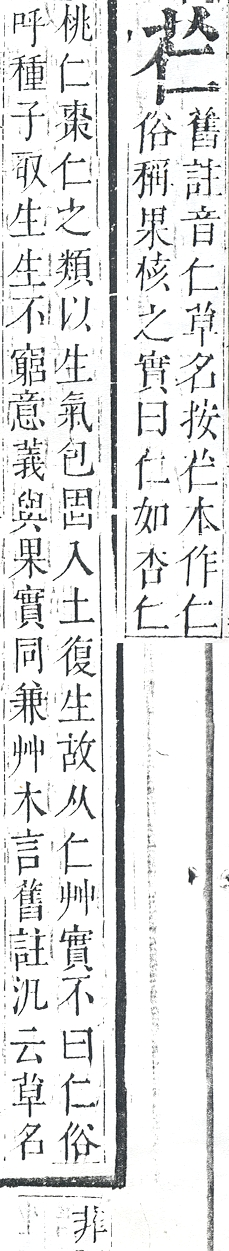 芢
舊註音仁草名按芢本作仁
俗稱果核之實曰仁如杏仁
桃仁棗仁之類以生氣包固入土復生故从仁艸實不曰仁俗
呼種子取生生不窮意義與果實同兼艸木言舊註汎云草名
非